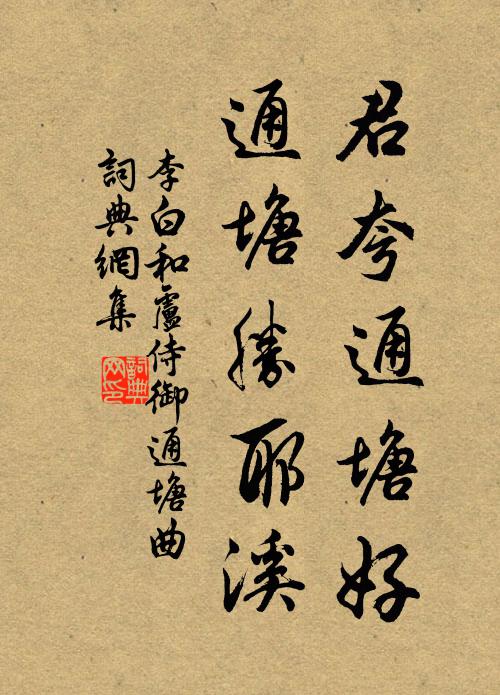 君夸通塘好
通塘勝耶溪
李白和盧侍御通塘曲
詞典網集
詞典網印